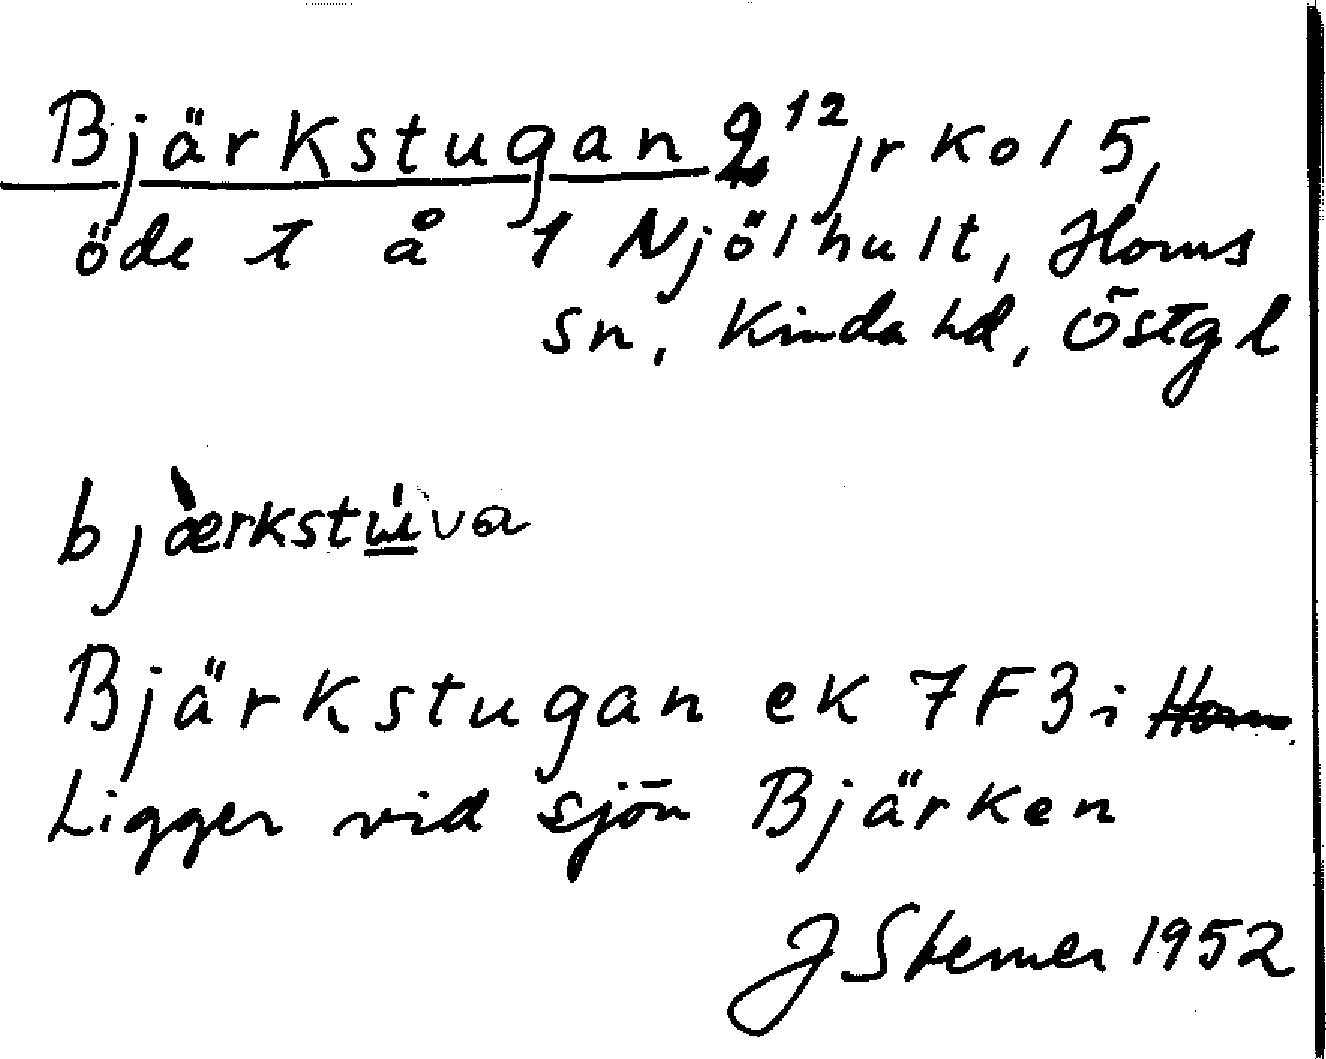 Bjärkstugan 2¹² jr kol 5,
öde t å 1 Njölhult, Horns
sn, Kinda hd, Östgl
bjærkstu̲va
Bjärkstugan ek 7F3i
Ligger vid sjön Bjärken
J Sterner 1952